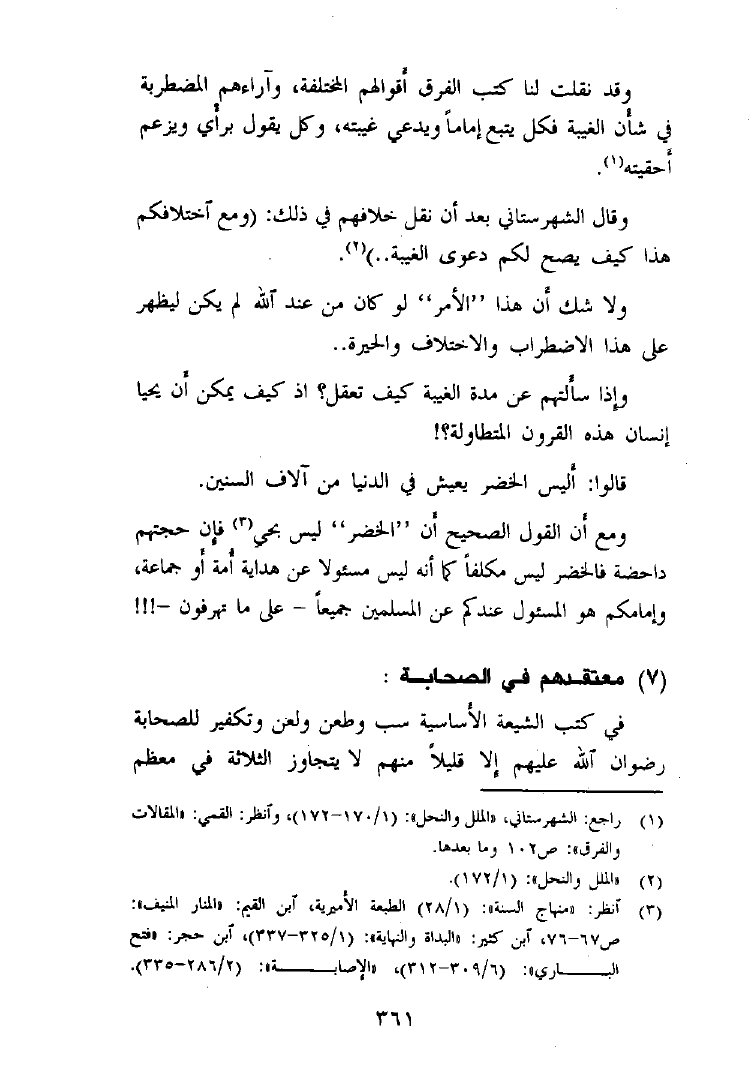 وقد نقلت لنا كتب الفرق أقوالهم المختلفة، وآراءهم المضطربة
في شأن الغيبة فكل يتبع إماماً ويدعي غيبته، وكل يقول برأي ويزعم
أحقيته(١).
وقال الشهرستاني بعد أن نقل خلافهم في ذلك: (ومع آختلافكم
هذا كيف يصح لكم دعوى الغيبة..)(٢).
ولا شك أن هذا ''الأمر'' لو كان من عند آلله لم يكن ليظهر
على هذا الاضطراب والاختلاف والحيرة..
وإذا سألتهم عن مدة الغيبة كيف تعقل؟ اذ كيف يمكن أن يحيا
إنسان هذه القرون المتطاولة؟!
قالوا: أليس الخضر يعيش في الدنيا من آلاف السنين.
ومع أن القول الصحيح أن ''الخضر'' ليس بحي(٣) فإن حجتهم
داحضة فالخضر ليس مكلفاً كما أنه ليس مسئولا عن هداية أمة أو جماعة،
وإمامكم هو المسئول عندكم عن المسلمين جميعاً - على ما تهرفون -!!!
(٧) معتقدهم في الصحابة :
في كتب الشيعة الأساسية سب وطعن ولعن وتكفير للصحابة
رضوان آلله عليهم إلا قليلاً منهم لا يتجاوز الثلاثة في معظم
(١) راجع: الشهرستاني، «الملل والنحل»: (١/١٧٠-١٧٢)، وآنظر: القمي: «المقالات
والفرق»: ص١٠٢ وما بعدها.
(٢) «الملل والنحل»: (١/١٧٢).
(٣) آنظر: «منهاج السنة»: (١/٢٨) الطبعة الأميرية، آبن القيم: «المنار المنيف»:
ص٦٧-٧٦، آبن كثير: «البداة والنهاية»: (١/٣٢٥-٣٣٧)، آبن حجر: «فتح
البـــــاري»: (٦/٣٠٩-٣١٢)، «الإصابـــــة»: (٢/٢٨٦-٣٣٥).
٣٦١